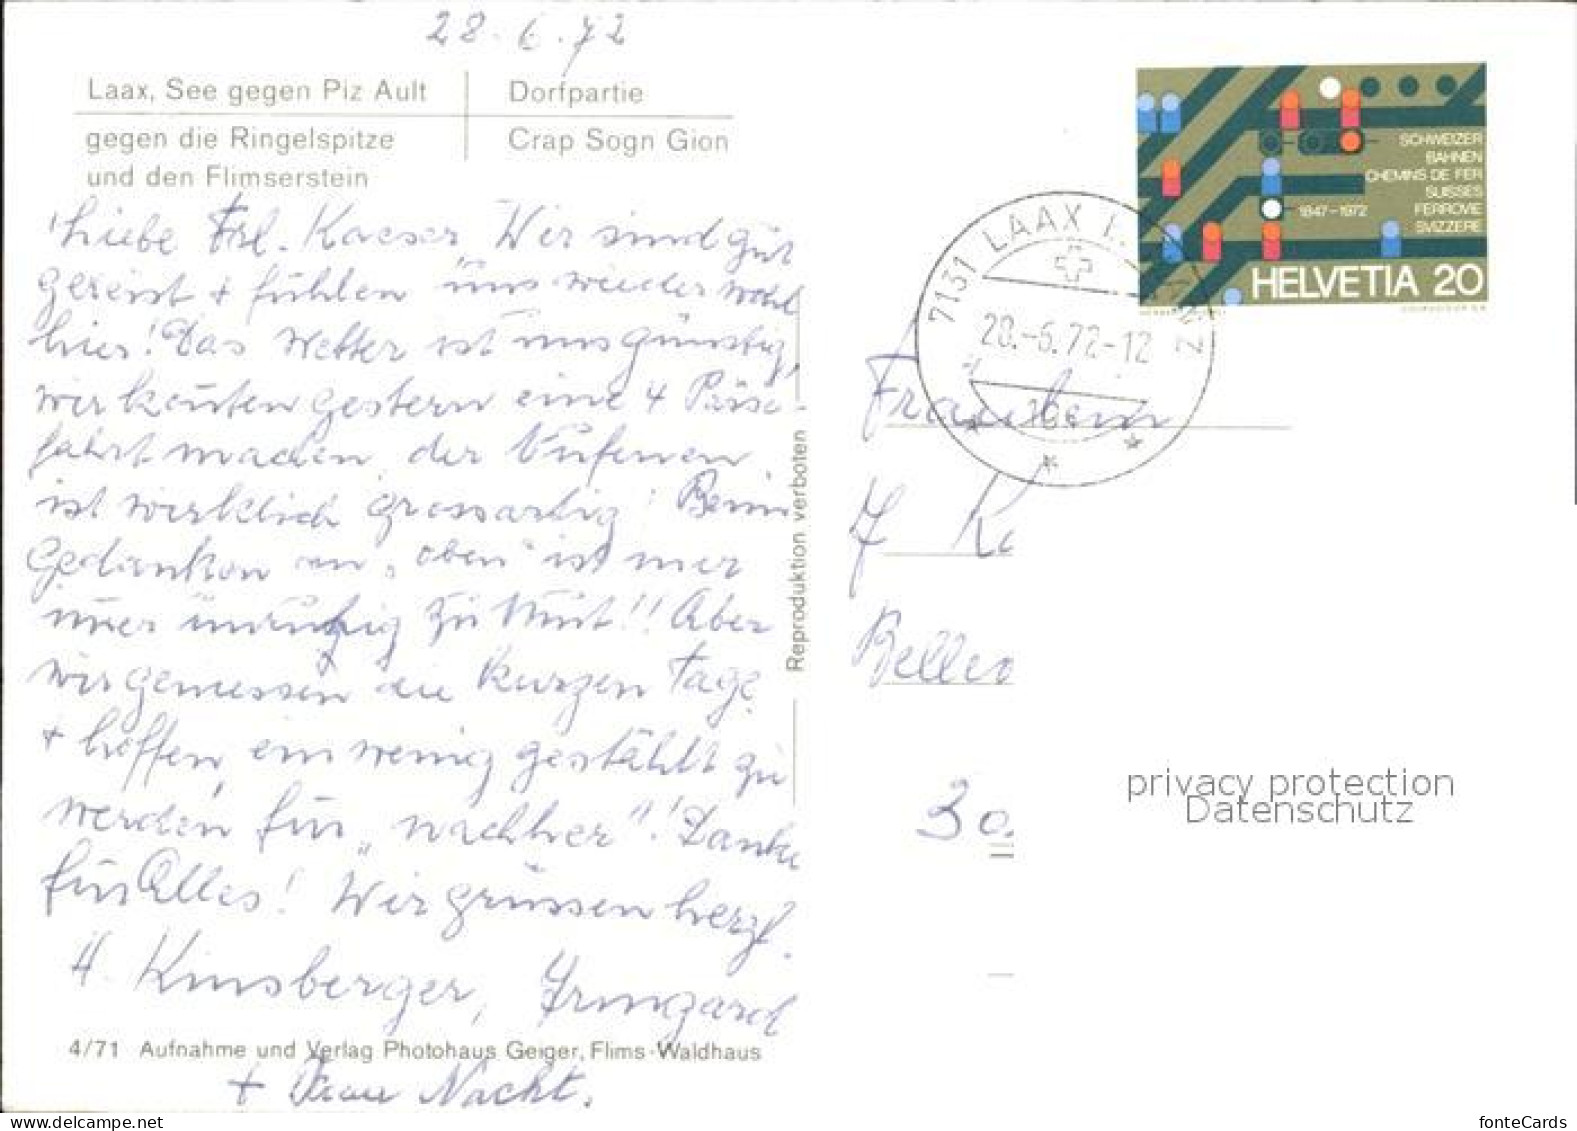 28.6.72
Laax, See gegen Piz Ault
Dorfpartie
gegen die Ringelspitze
Crap Sogn Gion
und den Flimserstein
Liebe Frl. Kaeser, Wir sind gut
gereist + fühlen uns wieder wohl
hier! Das Wetter ist uns günstig,
wir konnten gestern eine 4 Pässe-
fahrt machen, der Nufenen
ist wirklich grossartig! Beim
Gedanken an „oben" ist mir
immer unruhig zu Mut!! Aber
wir geniessen die kurzen Tage
+ hoffen, ein wenig gestählt zu
werden für „nachher"! Danke
für Alles! Wir grüssen herzl.
H. Kinsberger, Irmgard
+ Frau Nacht.
4/71 Aufnahme und Verlag Photohaus Geiger, Flims-Waldhaus
Reproduktion verboten
SCHWEIZER
BAHNEN
CHEMINS DE FER
SUISSES
1847-1972 FERROVIE
SVIZZERE
HELVETIA 20
7131 LAAX
28.-6.72-12
Fräulein
Belle
30.
privacy protection
Datenschutz
fonteCards